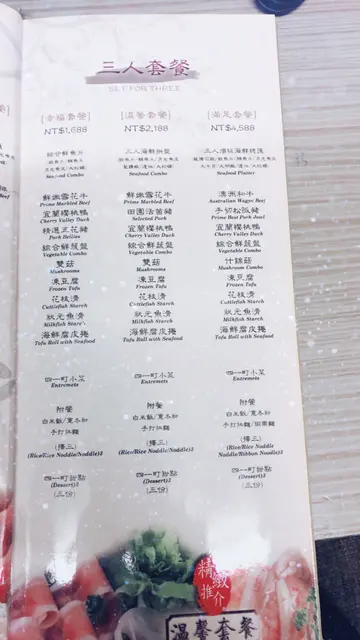 三人套餐
SET FOR THREE
[幸福套餐]
NT$1,688
綜合鮮魚片
Seafood Combo
鮮嫩雪花牛
Prime Marbled Beef
宜蘭櫻桃鴨
Cherry Valley Duck
精選五花豬
Pork Bellies
綜合鮮蔬盤
Vegetable Combo
雙菇
Mushrooms
凍豆腐
Frozen Tofu
花枝漿
Cuttlefish Starch
狀元魚漿
Milkfish Starc's
海鮮腐皮捲
Tofu Roll with Seafood
四一町小菜
Entremets
附餐
白米飯/寬冬粉
手打烏麵
(擇三)
(Rice/Rice Noddle/Noddle)3
四一町甜點
(Dessert)3
(三份)
[溫馨套餐]
NT$2,188
三人海鮮拼盤
Seafood Combo
鮮嫩雪花牛
Prime Marbled Beef
田園活菌豬
Selected Pork
宜蘭櫻桃鴨
Cherry Valley Duck
綜合鮮蔬盤
Vegetable Combo
雙菇
Mushrooms
凍豆腐
Frozen Tofu
花枝漿
Cuttlefish Starch
狀元魚漿
Milkfish Starch
海鮮腐皮捲
Tofu Roll with Seafood
四一町小菜
Entremets
附餐
白米飯/寬冬粉
手打烏麵
(擇三)
(Rice/Rice Noddle/Noddle)3
四一町甜點
(Dessert)3
(三份)
[滿足套餐]
NT$4,588
Seafood Platter
澳洲和牛
Australian Wagyu Beef
手切松阪豬
Prime Beat Pork Jowl
宜蘭櫻桃鴨
Cherry Valley Duck
綜合鮮蔬盤
Vegetable Combo
什錦菇
Mushroom Combo
凍豆腐
Frozen Tofu
花枝漿
Cuttlefish Starch
狀元魚漿
Milkfish Starch
海鮮腐皮捲
Tofu Roll with Seafood
四一町小菜
Entremets
附餐
白米飯/寬冬粉
(擇三)
(Rice/Rice Noddle
Noddle/Ribbon Noodle)3
四一町甜點
(Dessert)3
(三份)
精緻
推介
溫馨套餐